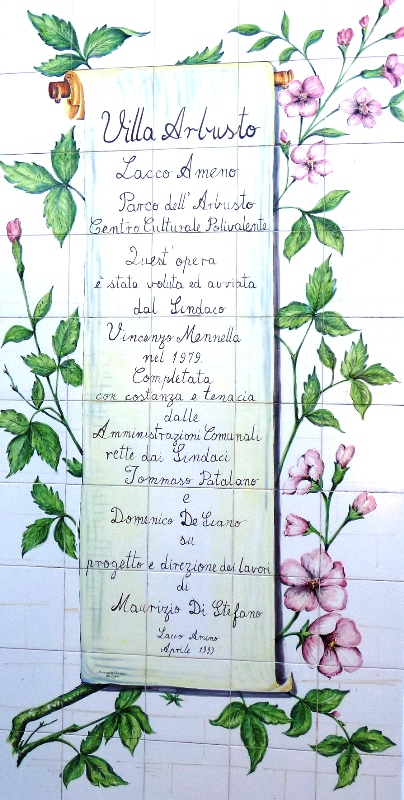 Villa Arbusto
Lacco Ameno
Parco dell'Arbusto
Centro Culturale Polivalente
Quest'opera
è stata voluta ed avviata
dal Sindaco
Vincenzo Mennella
nel 1979.
Completata
con costanza e tenacia
dalle
Amministrazioni Comunali
rette dai Sindaci
Tommaso Patalano
e
Domenico De Siano
su
progetto e direzione dei lavori
di
Maurizio Di Stefano
Lacco Ameno
Aprile 1999